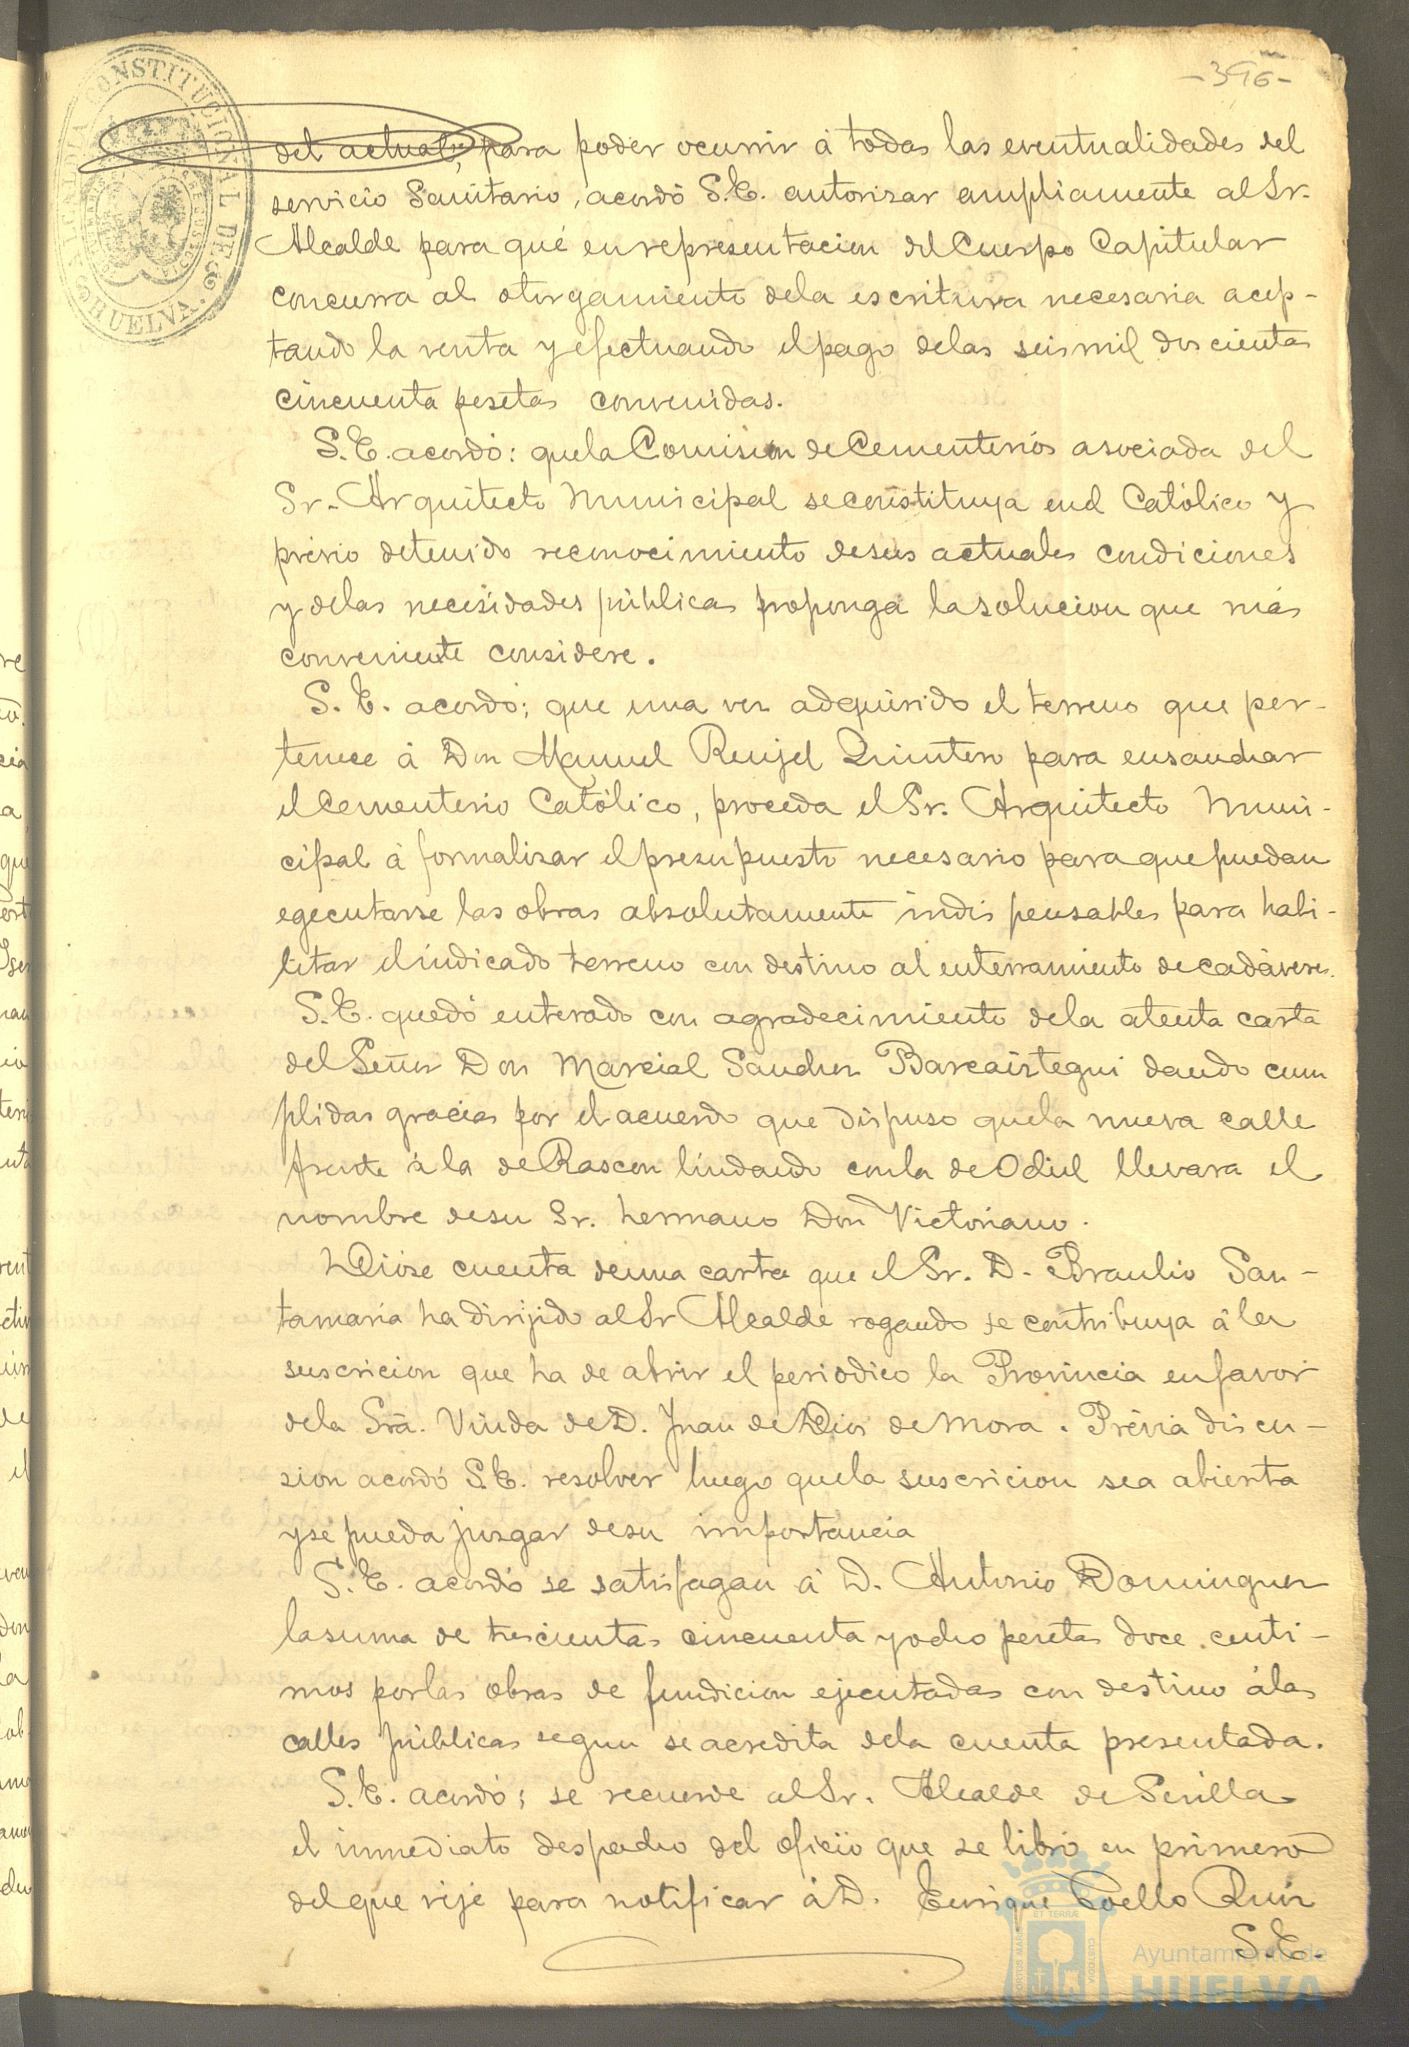 -396-
ALCALDIA CONSTITUCIONAL DE HUELVA
del actual, para poder ocurrir á todas las eventualidades del
servicio Sanitario, acordó S.E. autorizar ampliamente al Sr.
Alcalde para qué en representacion del Cuerpo Capitular
concurra al otorgamiento dela escritura necesaria acep-
tando la venta y efectuando el pago delas seis mil doscientas
cincuenta pesetas convenidas.
S.E. acordó: que la Comision de Cementerios asociada del
Sr. Arquitecto Municipal se constituya en el Católico y
prévio detenido reconocimiento desus actuales condiciones
y delas necesidades públicas proponga la solucion que más
conveniente considere.
S.E. acordó; que una vez adquirido el terreno que per-
tenece á Don Manuel Rengel Quintero para ensanchar
el Cementerio Católico, proceda el Sr. Arquitecto Muni-
cipal á formalizar el presupuesto necesario para que puedan
egecutarse las obras absolutamente indispensables para habi-
litar el indicado terreno con destino al enterramiento de cadáveres.
S.E. quedó enterado con agradecimiento dela atenta carta
del Señor Don Marcial Sanchez Barcaiztegui dando cum
plidas gracias por el acuerdo que dispuso quela nueva calle
frente á la de Rascon lindando con la de Odiel llevara el
nombre desu Sr. hermano Don Victoriano.
Dióse cuenta deuna carta que el Sr. D. Braulio San-
tamaria ha dirijido al Sr Alcalde rogando se contribuya á la
suscricion que ha de abrir el periodico la Provincia en favor
dela Srâ. Viuda de D. Juan de Dios de Mora. Prévia discu-
sion acordó S.E. resolver luego quela suscricion sea abierta
y se pueda juzgar desu importancia
S.E. acordó se satisfagan á D. Antonio Dominguez
la suma de trescientas cincuenta y ocho pesetas doce centi-
mos por las obras de fundicion ejecutadas con destino á las
calles públicas segun se acredita dela cuenta presentada.
S.E. acordó; se recuerde al Sr. Alcalde de Sevilla
el inmediato despacho del oficio que se libró en primero
del que rije para notificar á D. Enrique Coello Ruiz
S.E.
Ayuntamiento de
HUELVA